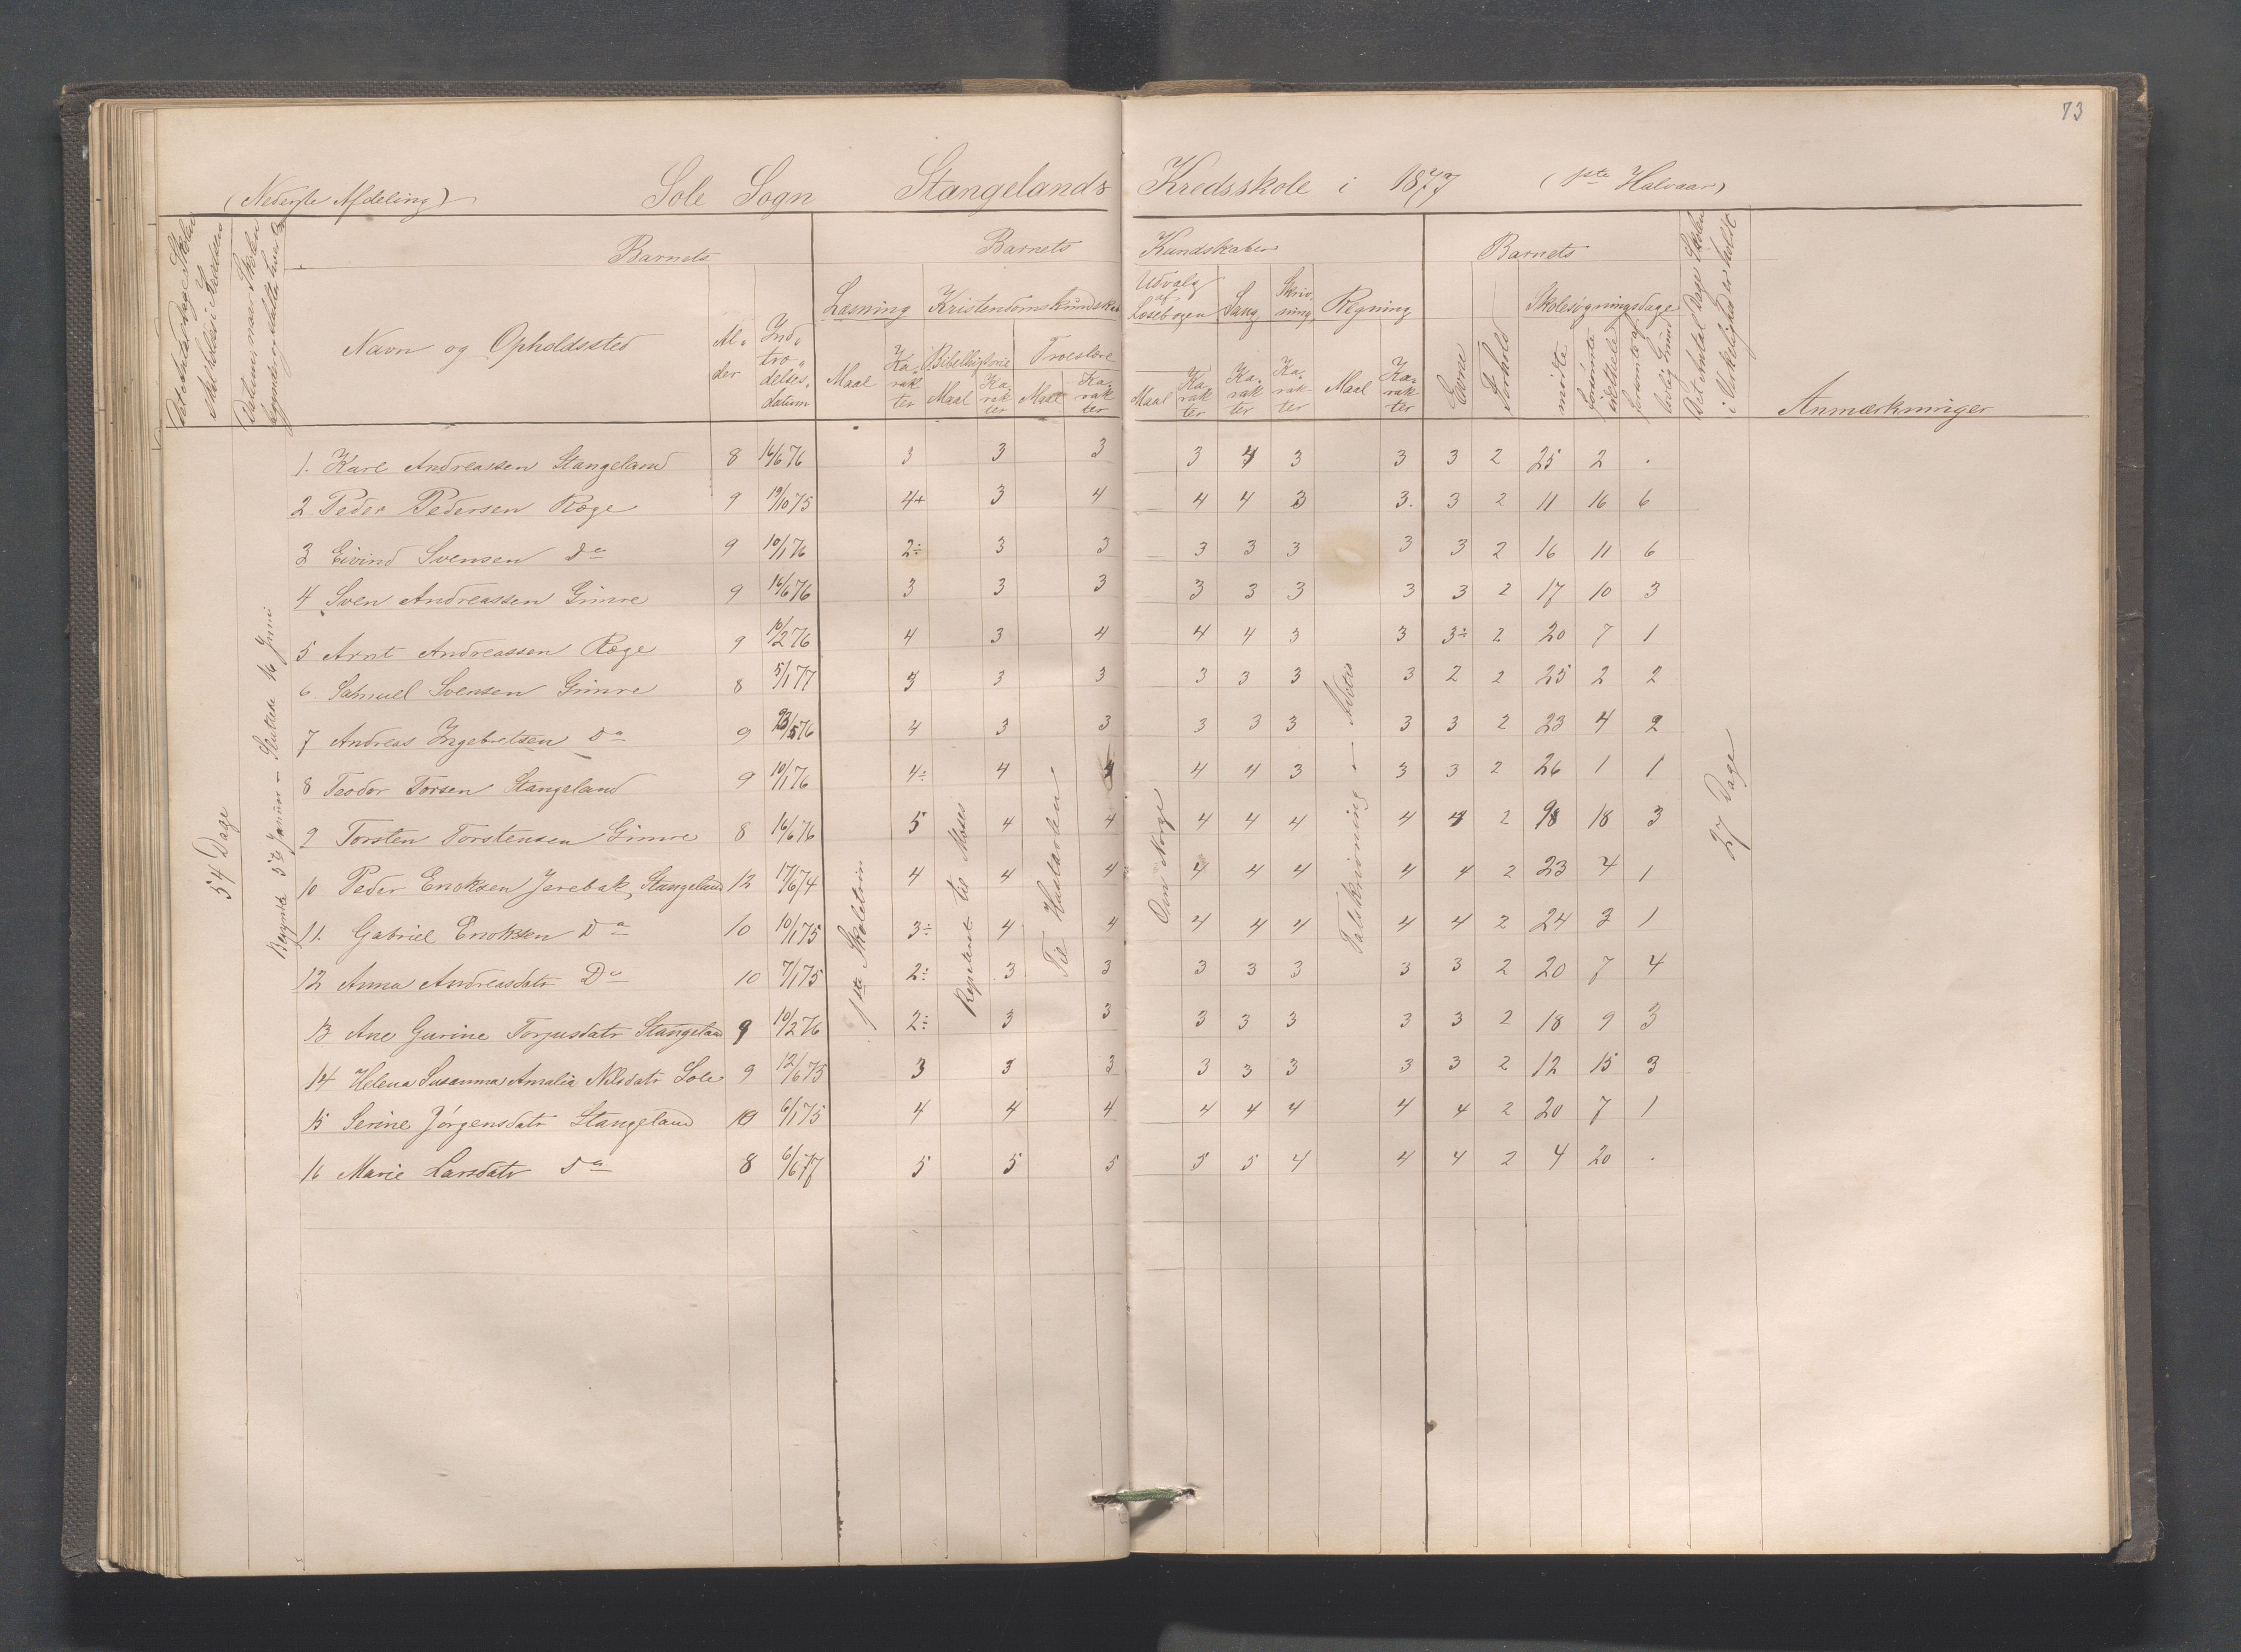 73
(Nederste Afdeling) Sole Sogn Stangelands Kredsskole i 1877 (1ste Halvaar)
Barnets Barnets Kundskaber Barnets
Læsning Kristendomskundskab Udvalg af Læsebogen Sang Skrivning Regning Skolesøgningsdage
Navn og Opholdssted Alder Indtrædelsesdatum Maal Karakter Bibelhistorie Troeslære
Maal Karakter Maal Karakter Maal Karakter Karakter Karakter Maal Karakter Evne Forhold mødte forsømte forsømte af lovlig Grund
Det Antal Dage Skolen i Virkelighed er holdt
Anmærkninger
54 Dage
Begyndt 5te Januar - Sluttede 16 Juni
1ste Skoletrin
Repeteret til Moses
Til Hustavlen
Om Norge
Talskrivning
27 Dage
1. Karl Andreassen Stangeland 8 16/6 76 3 3 3 3 4 3 3 3 2 25 2 .
2 Peder Pedersen Ræge 9 19/10 75 4+ 3 4 4 4 3 3. 3 2 11 16 6
3 Eivind Svensen do 9 10/1 76 2÷ 3 3 3 3 3 3 3 2 16 11 6
4 Sven Andreassen Gimre 9 16/6 76 3 3 3 3 3 3 3 3 2 17 10 3
5 Arnt Andreassen Ræge 9 10/2 76 4 3 4 4 4 3 3 3÷ 2 20 7 1
6 Samuel Svensen Gimre 8 5/1 77 3 3 3 3 3 3 3 2 2 25 2 2
7 Andreas Ingebretsen do 9 23/5 76 4 3 3 3 3 3 3 3 2 23 4 2
8 Teodor Torsen Stangeland 9 10/1 76 4÷ 4 4 4 4 3 3 3 2 26 1 1
9 Torsten Torstensen Gimre 8 16/6 76 5 4 4 4 4 4 4 4 2 98 18 3
10 Peder Enoksen Jerebak, Stangeland 12 17/6 74 4 4 4 4 4 4 4 4 2 23 4 1
11. Gabriel Enoksen Do 10 10/1 75 3÷ 4 4 4 4 4 4 4 2 24 3 1
12 Anna Andreasdatr Do 10 7/1 75 2÷ 3 3 3 3 3 3 3 2 20 7 4
13 Ane Gurine Torjusdatr Stangeland 9 10/2 76 2÷ 3 3 3 3 3 3 3 2 18 9 3
14 Helena Susanna Amalia Nilsdatr Sole 9 12/6 75 3 3 3 3 3 3 3 3 2 12 15 3
15 Serine Jörgensdatr Stangeland 10 6/1 75 4 4 4 4 4 4 4 4 2 20 7 1
16 Marie Larsdatr do 8 6/6 77 5 5 5 5 5 4 4 4 2 4 20 .